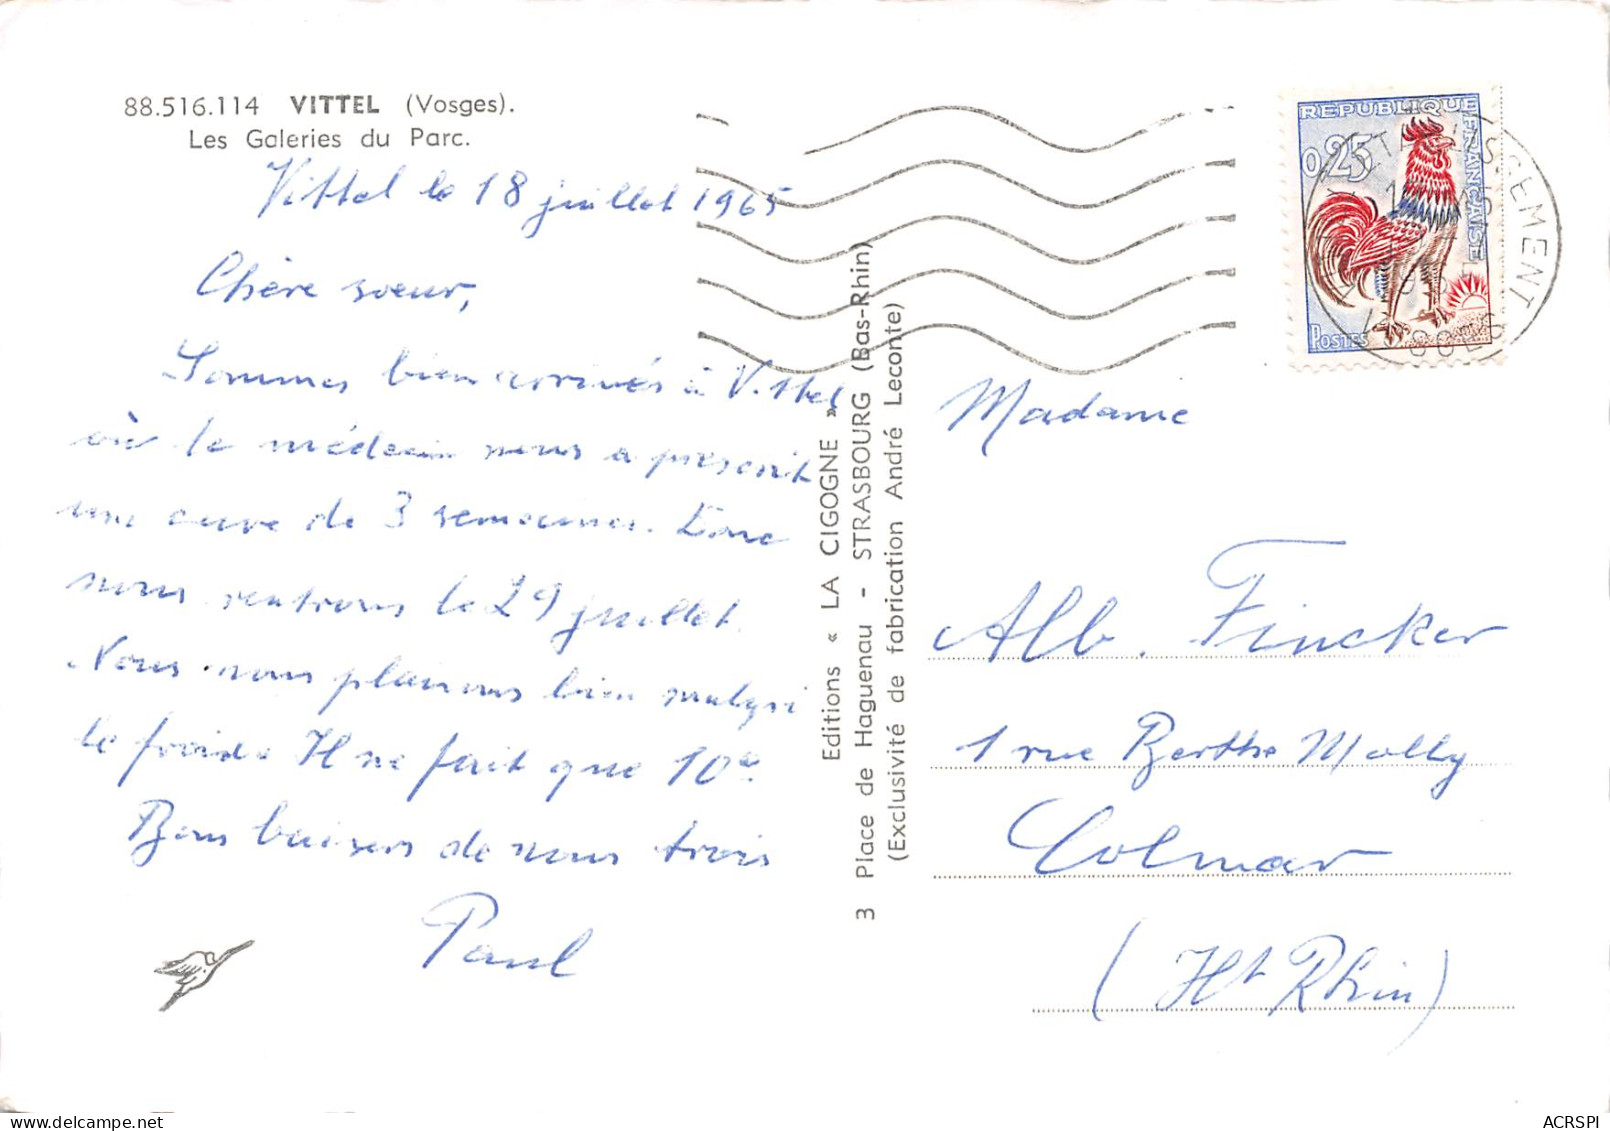 88.516.114 VITTEL (Vosges).
Les Galeries du Parc.
Vittel le 18 juillet 1965
Chère soeur,
Sommes bien arrivés à Vittel
où le médecin nous a prescrit
une cure de 3 semaines. Donc
nous rentrons le 29 juillet.
Nous nous plaisons bien malgré
le froid. Il ne fait que 10°.
Bons baisers de nous trois
Paul
Editions « LA CIGOGNE »
3 Place de Haguenau - STRASBOURG (Bas-Rhin)
(Exclusivité de fabrication André Leconte)
REPUBLIQUE FRANÇAISE
0,25
POSTES
VITTEL
VOSGES
Madame
Alb. Fincker
1 rue Berthe Molly
Colmar
(Ht Rhin)
ACRSPI